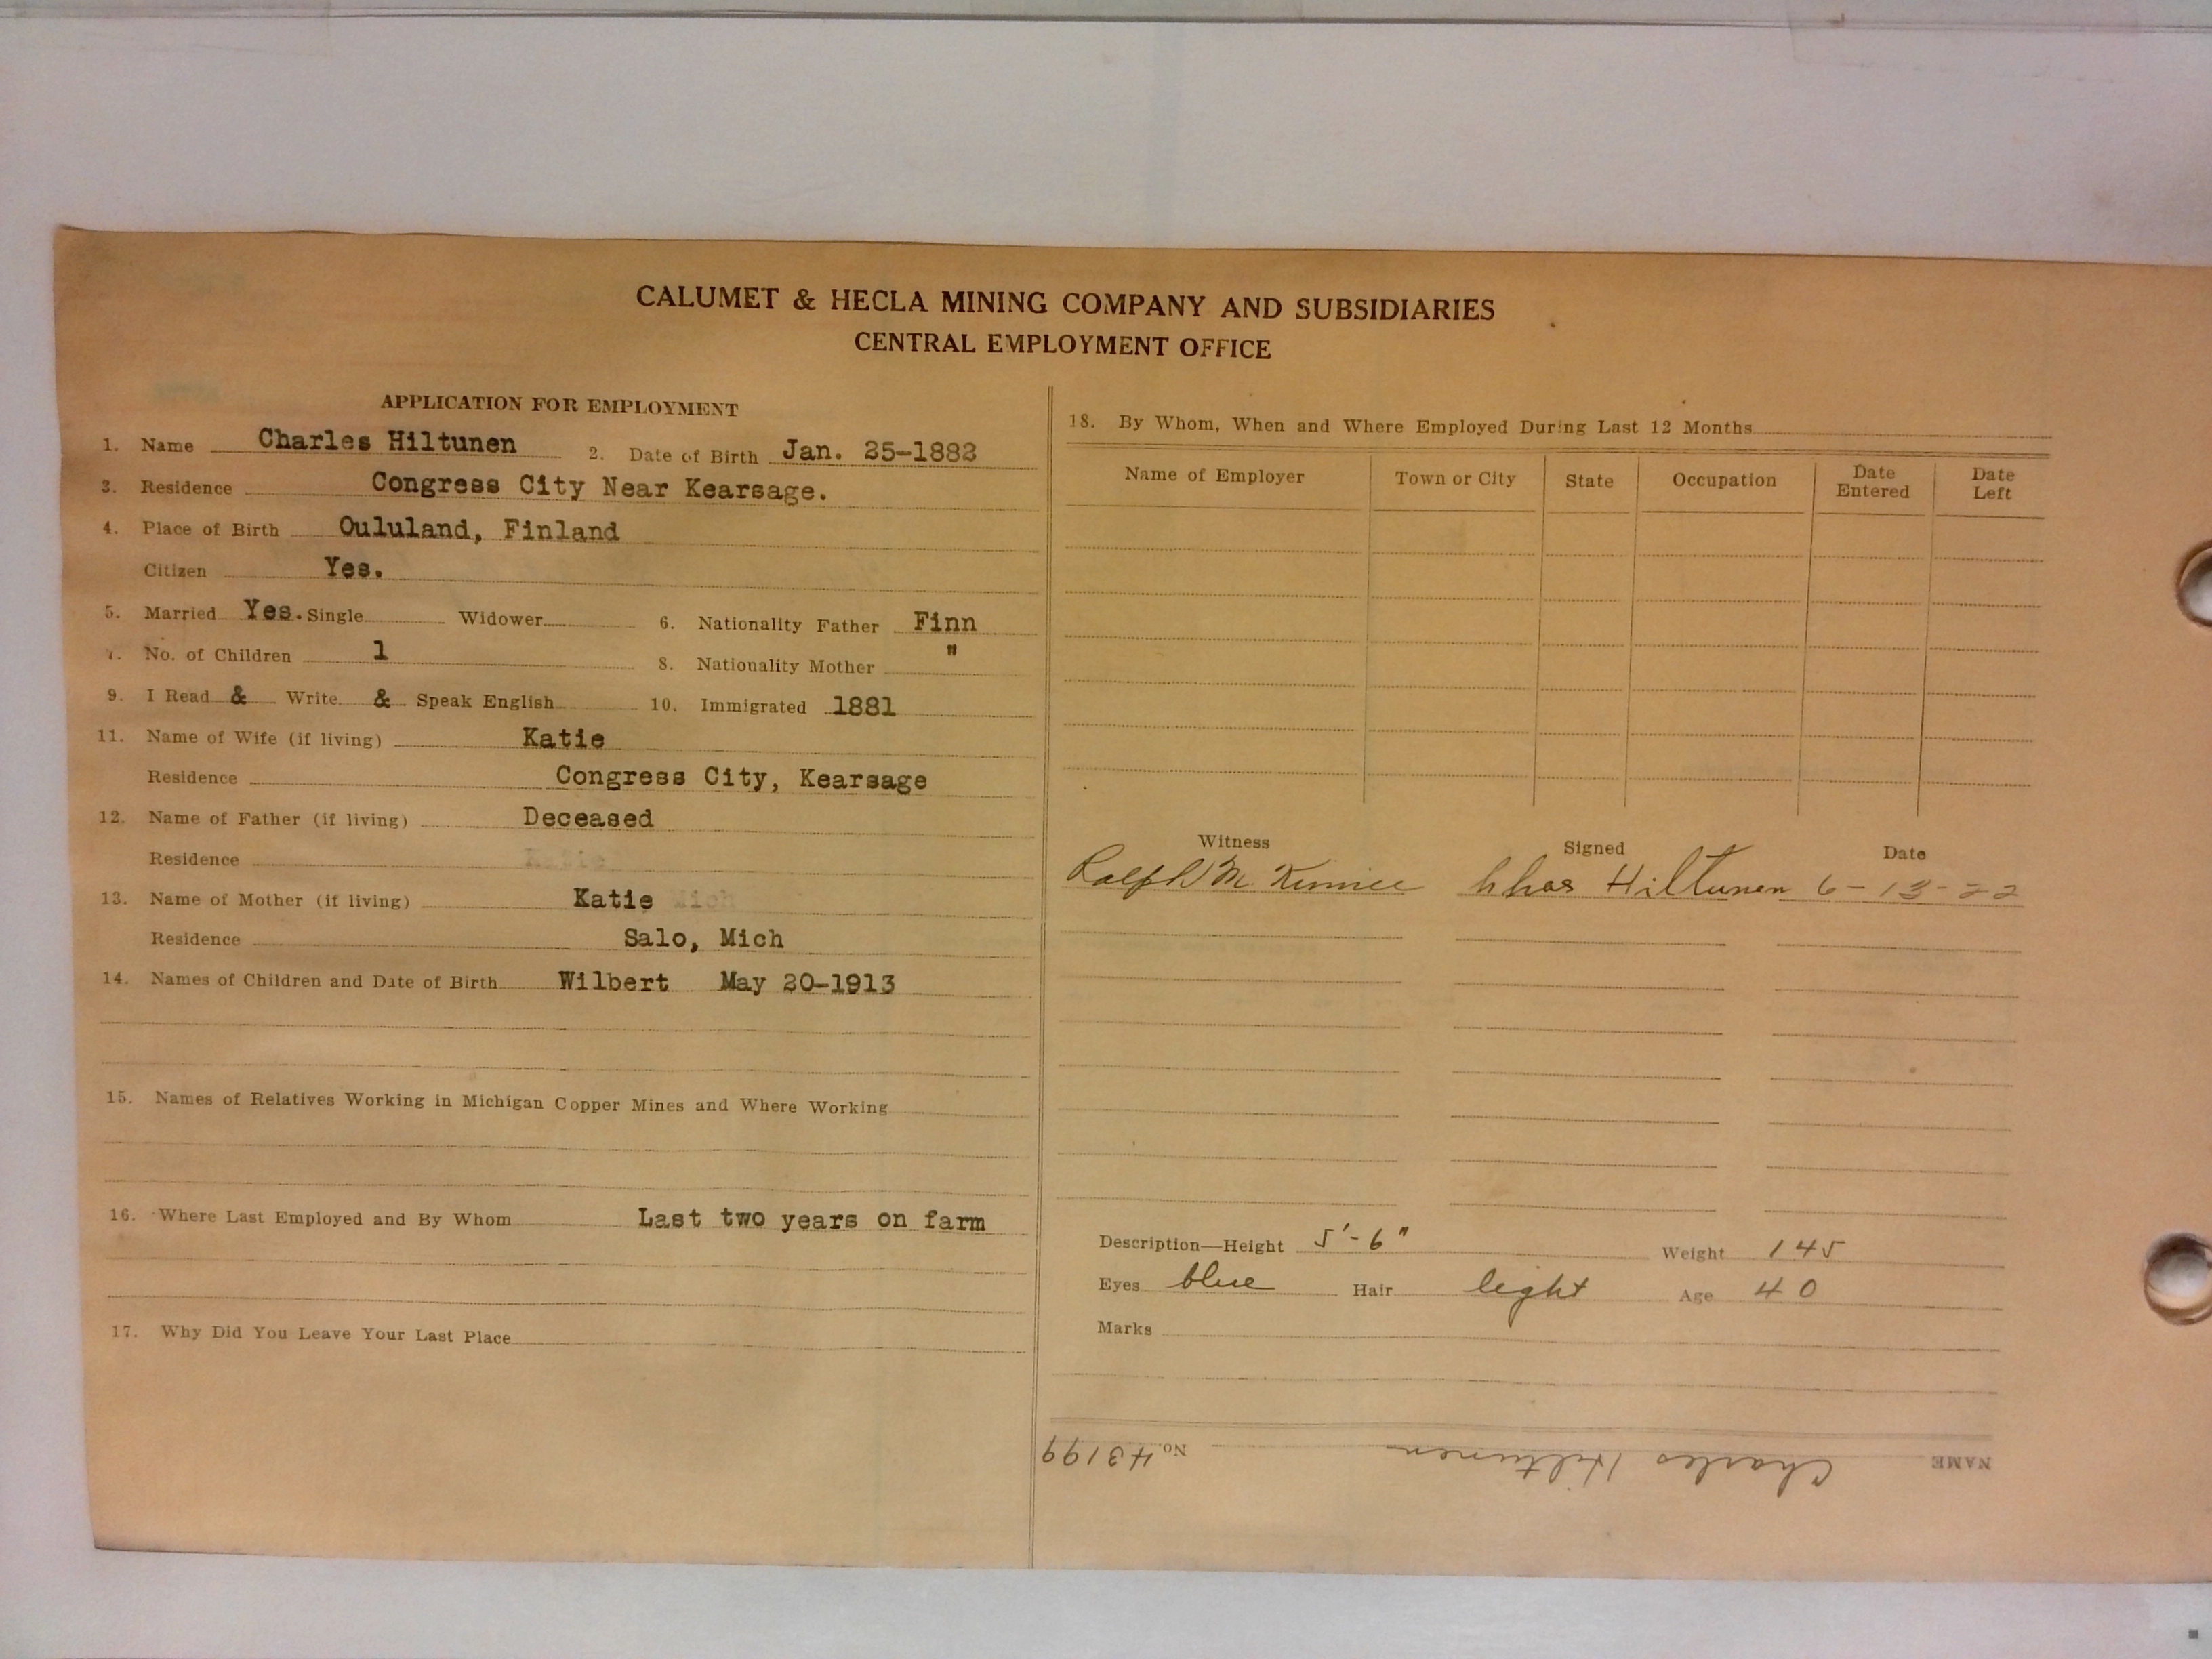 CALUMET & HECLA MINING COMPANY AND SUBSIDIARIES
CENTRAL EMPLOYMENT OFFICE
APPLICATION FOR EMPLOYMENT
1. Name Charles Hiltunen 2. Date of Birth Jan. 25-1882
3. Residence Congress City Near Kearsage.
4. Place of Birth Oululand, Finland
Citizen Yes.
5. Married Yes. Single Widower 6. Nationality Father Finn
7. No. of Children 1 8. Nationality Mother "
9. I Read & Write & Speak English 10. Immigrated 1881
11. Name of Wife (if living) Katie
Residence Congress City, Kearsage
12. Name of Father (if living) Deceased
Residence Katie
13. Name of Mother (if living) Katie Mich
Residence Salo, Mich
14. Names of Children and Date of Birth Wilbert May 20-1913
15. Names of Relatives Working in Michigan Copper Mines and Where Working
16. Where Last Employed and By Whom Last two years on farm
17. Why Did You Leave Your Last Place
18. By Whom, When and Where Employed During Last 12 Months
Name of Employer Town or City State Occupation Date Entered Date Left
Witness Signed Date
Ralph M Chas Hiltunen 6-13-22
Description—Height 5'-6" Weight 145
Eyes blue Hair light Age 40
Marks
NAME Charles Hiltunen No. 43199